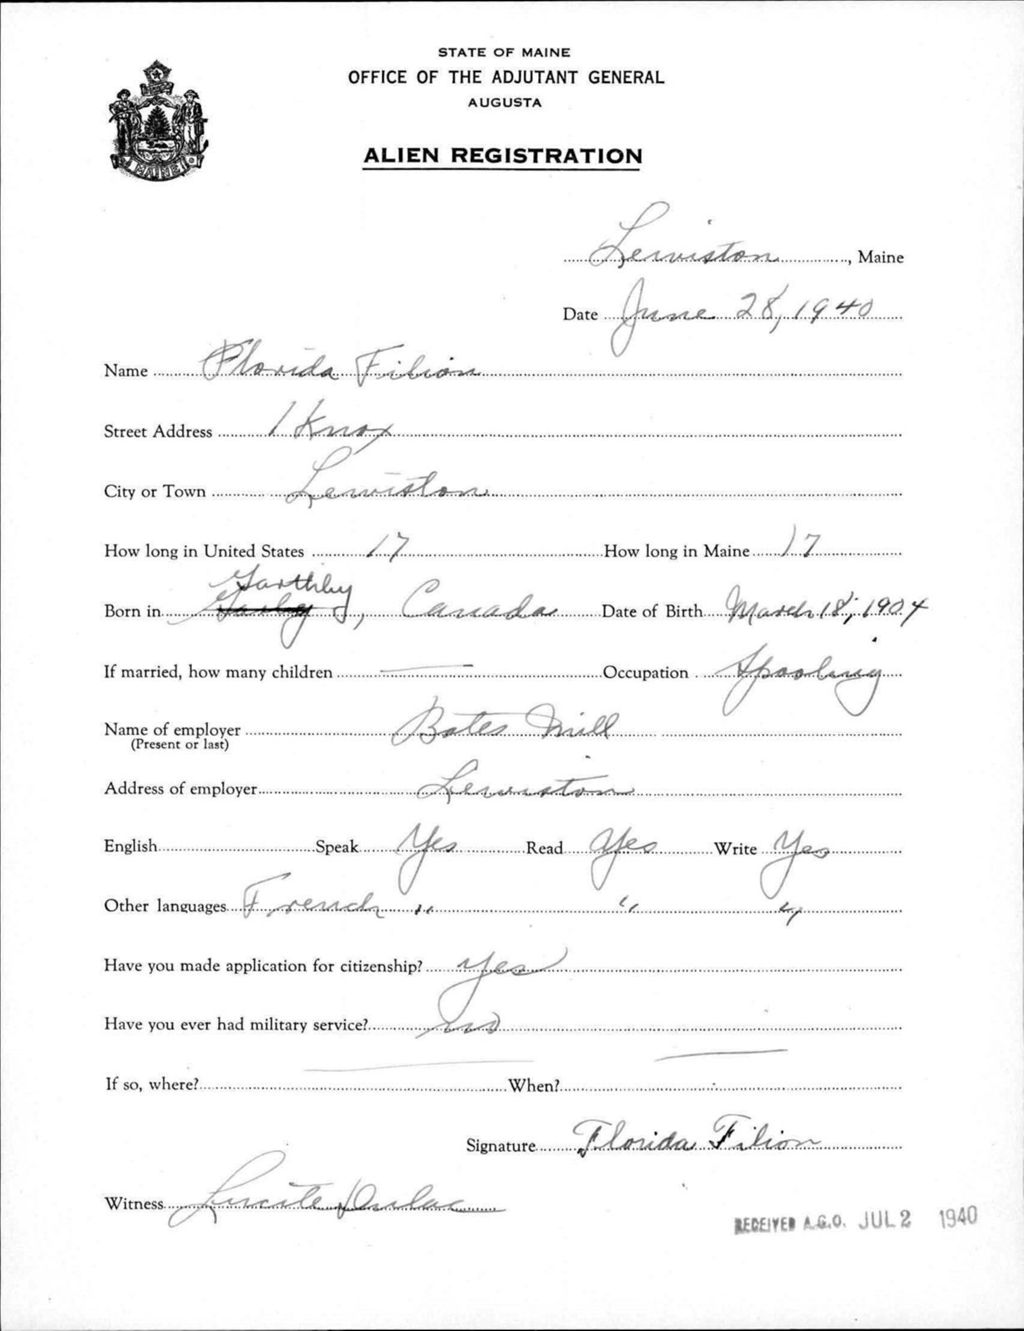 STATE OF MAINE
OFFICE OF THE ADJUTANT GENERAL
AUGUSTA
ALIEN REGISTRATION
Lewiston, Maine
Date June 28, 1940
Name Florida Filion
Street Address 1 Knox
City or Town Lewiston
How long in United States 17 How long in Maine 17
Garthby
Born in , Canada Date of Birth March 18, 1904
If married, how many children — Occupation Spooling
Name of employer Bates Mill
(Present or last)
Address of employer Lewiston
English Speak Yes Read Yes Write Yes
Other languages French " " "
Have you made application for citizenship? Yes
Have you ever had military service? no
If so, where? — When? —
Signature Florida Filion
Witness Lucile
RECEIVED A.G.O. JUL 2 1940